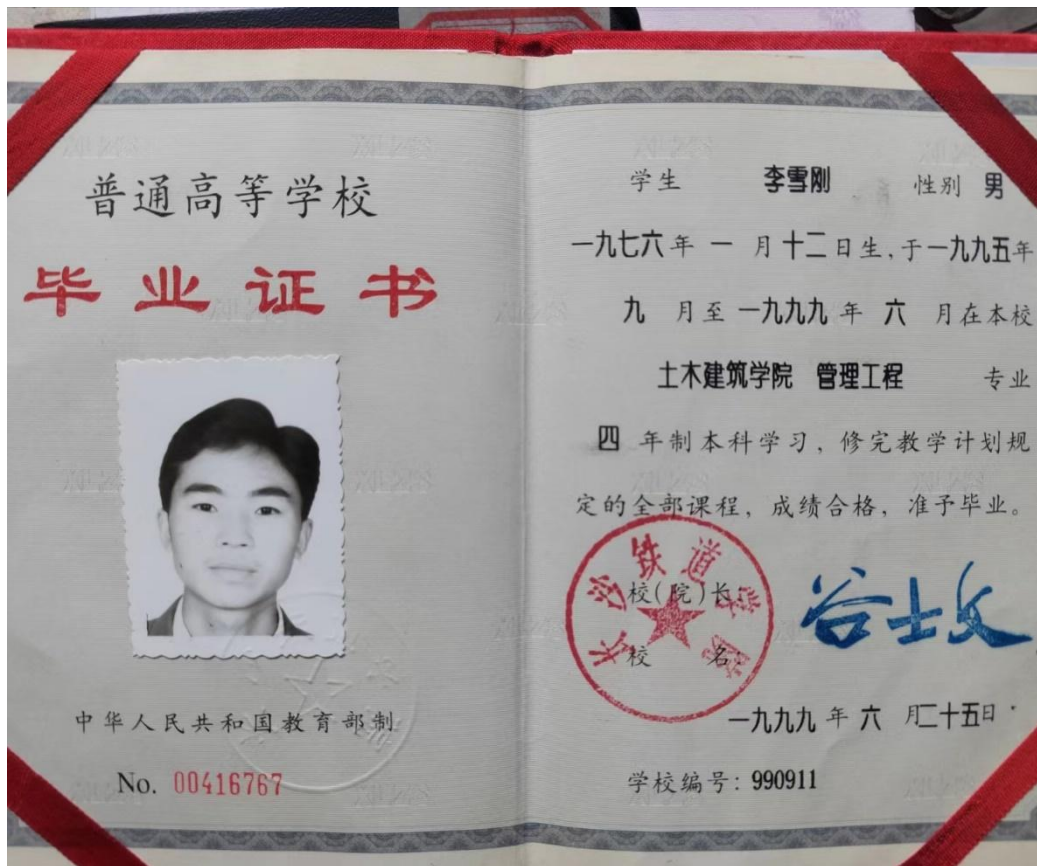 普通高等学校
毕业证书
中华人民共和国教育部制
No. 00416767
学生 李雪刚 性别 男
一九七六年 一 月十二日生,于一九九五年
九 月至一九九九年 六 月在本校
土木建筑学院 管理工程 专业
四 年制本科学习，修完教学计划规
定的全部课程，成绩合格，准予毕业。
长沙铁道学院
校(院)长:
谷士文
校 名:
一九九九年 六 月二十五日
学校编号: 990911